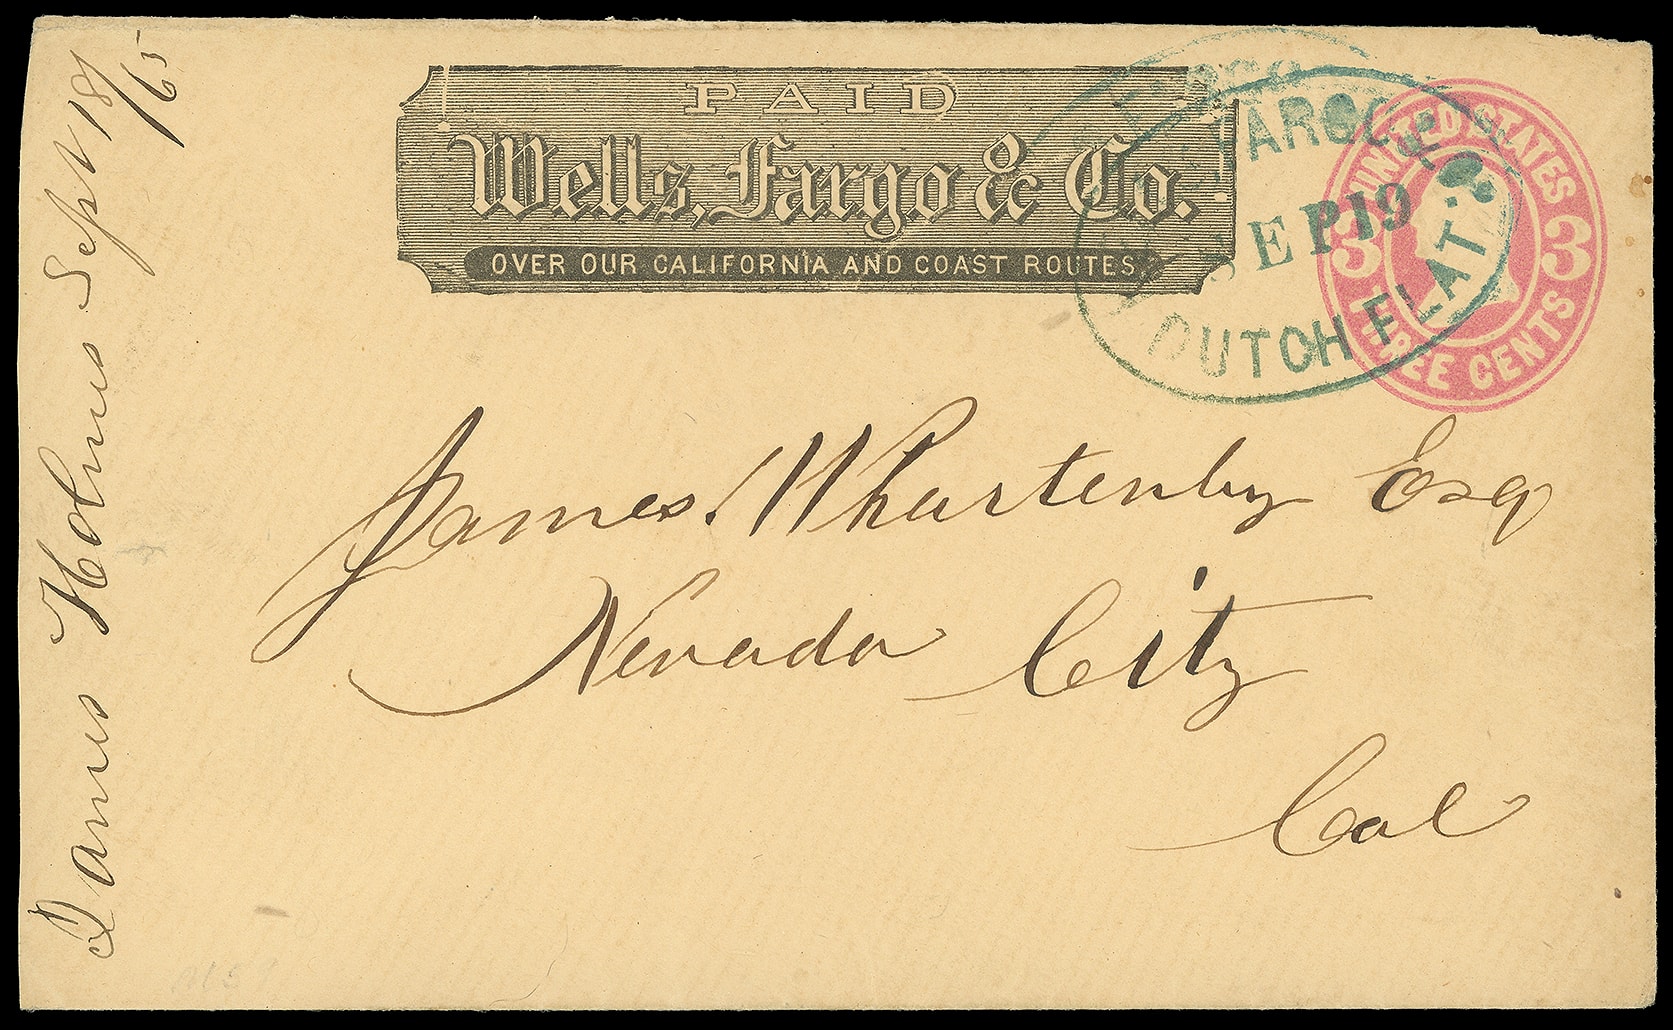 PAID
Wells, Fargo & Co.
OVER OUR CALIFORNIA AND COAST ROUTES.
FARGO &
SEP 19
DUTCH FLAT
UNITED STATES
3 3
THREE CENTS
James Whartenby Esq
Nevada City
Cal
James Holmes Sept 18/65